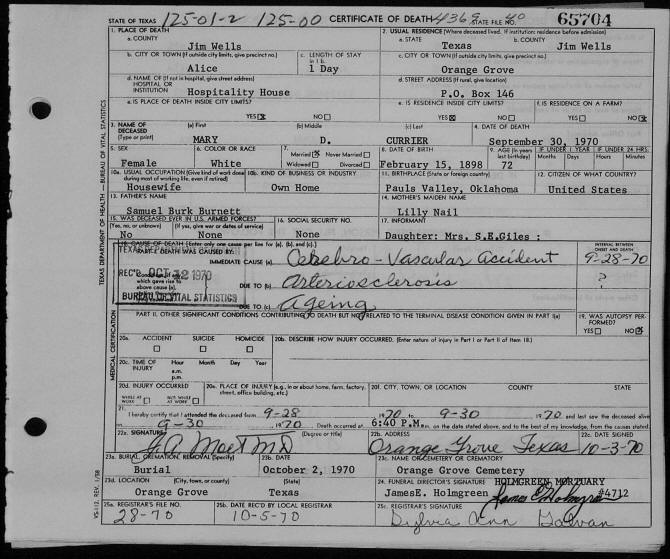 STATE OF TEXAS 125-01-2 125-00 CERTIFICATE OF DEATH 4369 STATE FILE NO. 40 65704
1. PLACE OF DEATH
a. COUNTY
Jim Wells
2. USUAL RESIDENCE (Where deceased lived. If institution: residence before admission)
a. STATE b. COUNTY
Texas Jim Wells
b. CITY OR TOWN (If outside city limits, give precinct no.) c. LENGTH OF STAY in 1 b.
Alice 1 Day
c. CITY OR TOWN (If outside city limits, give precinct no.)
Orange Grove
d. NAME OF (If not in hospital, give street address) HOSPITAL OR INSTITUTION
Hospitality House
d. STREET ADDRESS (If rural, give location)
P.O. Box 146
e. IS PLACE OF DEATH INSIDE CITY LIMITS?
YES X NO
e. IS RESIDENCE INSIDE CITY LIMITS? f. IS RESIDENCE ON A FARM?
YES X NO YES NO X
3. NAME OF DECEASED (Type or print) (a) First (b) Middle (c) Last 4. DATE OF DEATH
MARY D. CURRIER September 30, 1970
5. SEX 6. COLOR OR RACE 7. Married X Never Married Widowed Divorced 8. DATE OF BIRTH 9. AGE (In years last birthday) IF UNDER 1 YEAR Months Days IF UNDER 24 HRS. Hours Minutes
Female White February 15, 1898 72
10a. USUAL OCCUPATION (Give kind of work done during most of working life, even if retired) 10b. KIND OF BUSINESS OR INDUSTRY 11. BIRTHPLACE (State or foreign country) 12. CITIZEN OF WHAT COUNTRY?
Housewife Own Home Pauls Valley, Oklahoma United States
13. FATHER'S NAME 14. MOTHER'S MAIDEN NAME
Samuel Burk Burnett Lilly Nail
15. WAS DECEASED EVER IN U.S. ARMED FORCES? (Yes, no, or unknown) (If yes, give war or dates of service) 16. SOCIAL SECURITY NO. 17. INFORMANT
No None None Daughter: Mrs. S.E.Giles ;
18. CAUSE OF DEATH [Enter only one cause per line for (a), (b), and (c).] INTERVAL BETWEEN ONSET AND DEATH
PART I. DEATH WAS CAUSED BY:
IMMEDIATE CAUSE (a) Cerebro-Vascular accident 9-28-70
REC'D OCT 12 1970
DUE TO (b) Arteriosclerosis ?
BUREAU OF VITAL STATISTICS
DUE TO (c) ageing
PART II. OTHER SIGNIFICANT CONDITIONS CONTRIBUTING TO DEATH BUT NOT RELATED TO THE TERMINAL DISEASE CONDITION GIVEN IN PART I(a) 19. WAS AUTOPSY PERFORMED?
YES NO X
20a. ACCIDENT SUICIDE HOMICIDE 20b. DESCRIBE HOW INJURY OCCURRED. (Enter nature of injury in Part I or Part II of item 18.)
20c. TIME OF INJURY Hour Month Day Year
a.m.
p.m.
20d. INJURY OCCURRED WHILE AT WORK NOT WHILE AT WORK 20e. PLACE OF INJURY (e.g., in or about home, farm, factory, street, office building, etc.) 20f. CITY, TOWN, OR LOCATION COUNTY STATE
21. I hereby certify that I attended the deceased from 9-28 1970 to 9-30 1970 and last saw the deceased alive
on 9-30 1970 Death occurred at 6:40 P.M. m. on the date stated above, and to the best of my knowledge, from the causes stated.
22a. SIGNATURE (Degree or title) 22b. ADDRESS 22c. DATE SIGNED
MD Orange Grove Texas 10-3-70
23a. BURIAL, CREMATION, REMOVAL (Specify) 23b. DATE 23c. NAME OF CEMETERY OR CREMATORY
Burial October 2, 1970 Orange Grove Cemetery
23d. LOCATION (City, town, or county) (State) 24. FUNERAL DIRECTOR'S SIGNATURE HOLMGREEN MORTUARY
Orange Grove Texas JamesE. Holmgreen James E Holmgreen #4712
25a. REGISTRAR'S FILE NO. 25b. DATE REC'D BY LOCAL REGISTRAR 25c. REGISTRAR'S SIGNATURE
28-70 10-5-70 Sylvia Ann Galvan
TEXAS DEPARTMENT OF HEALTH — BUREAU OF VITAL STATISTICS
MEDICAL CERTIFICATION
VS-112, REV. 1/58